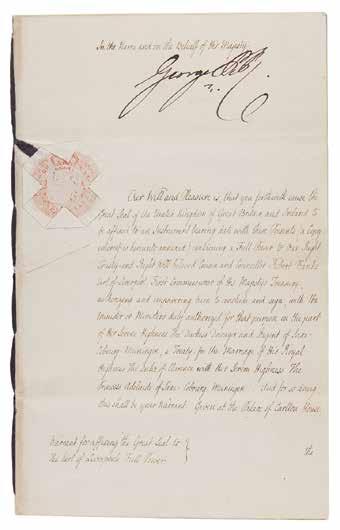 In the Name and on the Behalf of His Majesty
George P R
Our Will and Pleasure is, that you forthwith cause the
Great Seal of the United Kingdom of Great Britain and Ireland to
be affixed to an Instrument bearing date with these Presents (a Copy
whereof is hereunto annexed) containing a Full Power to Our Right
Trusty and Right Wellbeloved Cousin and Councillor Robert Banks
Earl of Liverpool First Commissioner of His Majestys Treasury,
authorizing and impowering him to conclude and sign, with the
Minister or Ministers duly authorized for that purpose on the part
of Her Serene Highness The Duchess Dowager and Regent of Saxe-
Cobourg-Meiningen, a Treaty, for the Marriage of His Royal
Highness The Duke of Clarence with Her Serene Highness The
Princess Adelaide of Saxe-Cobourg-Meiningen. And for so doing
this shall be your Warrant. Given at the Palace of Carlton House
the
Warrant for affixing the Great Seal to
the Earl of Liverpool's Full Power